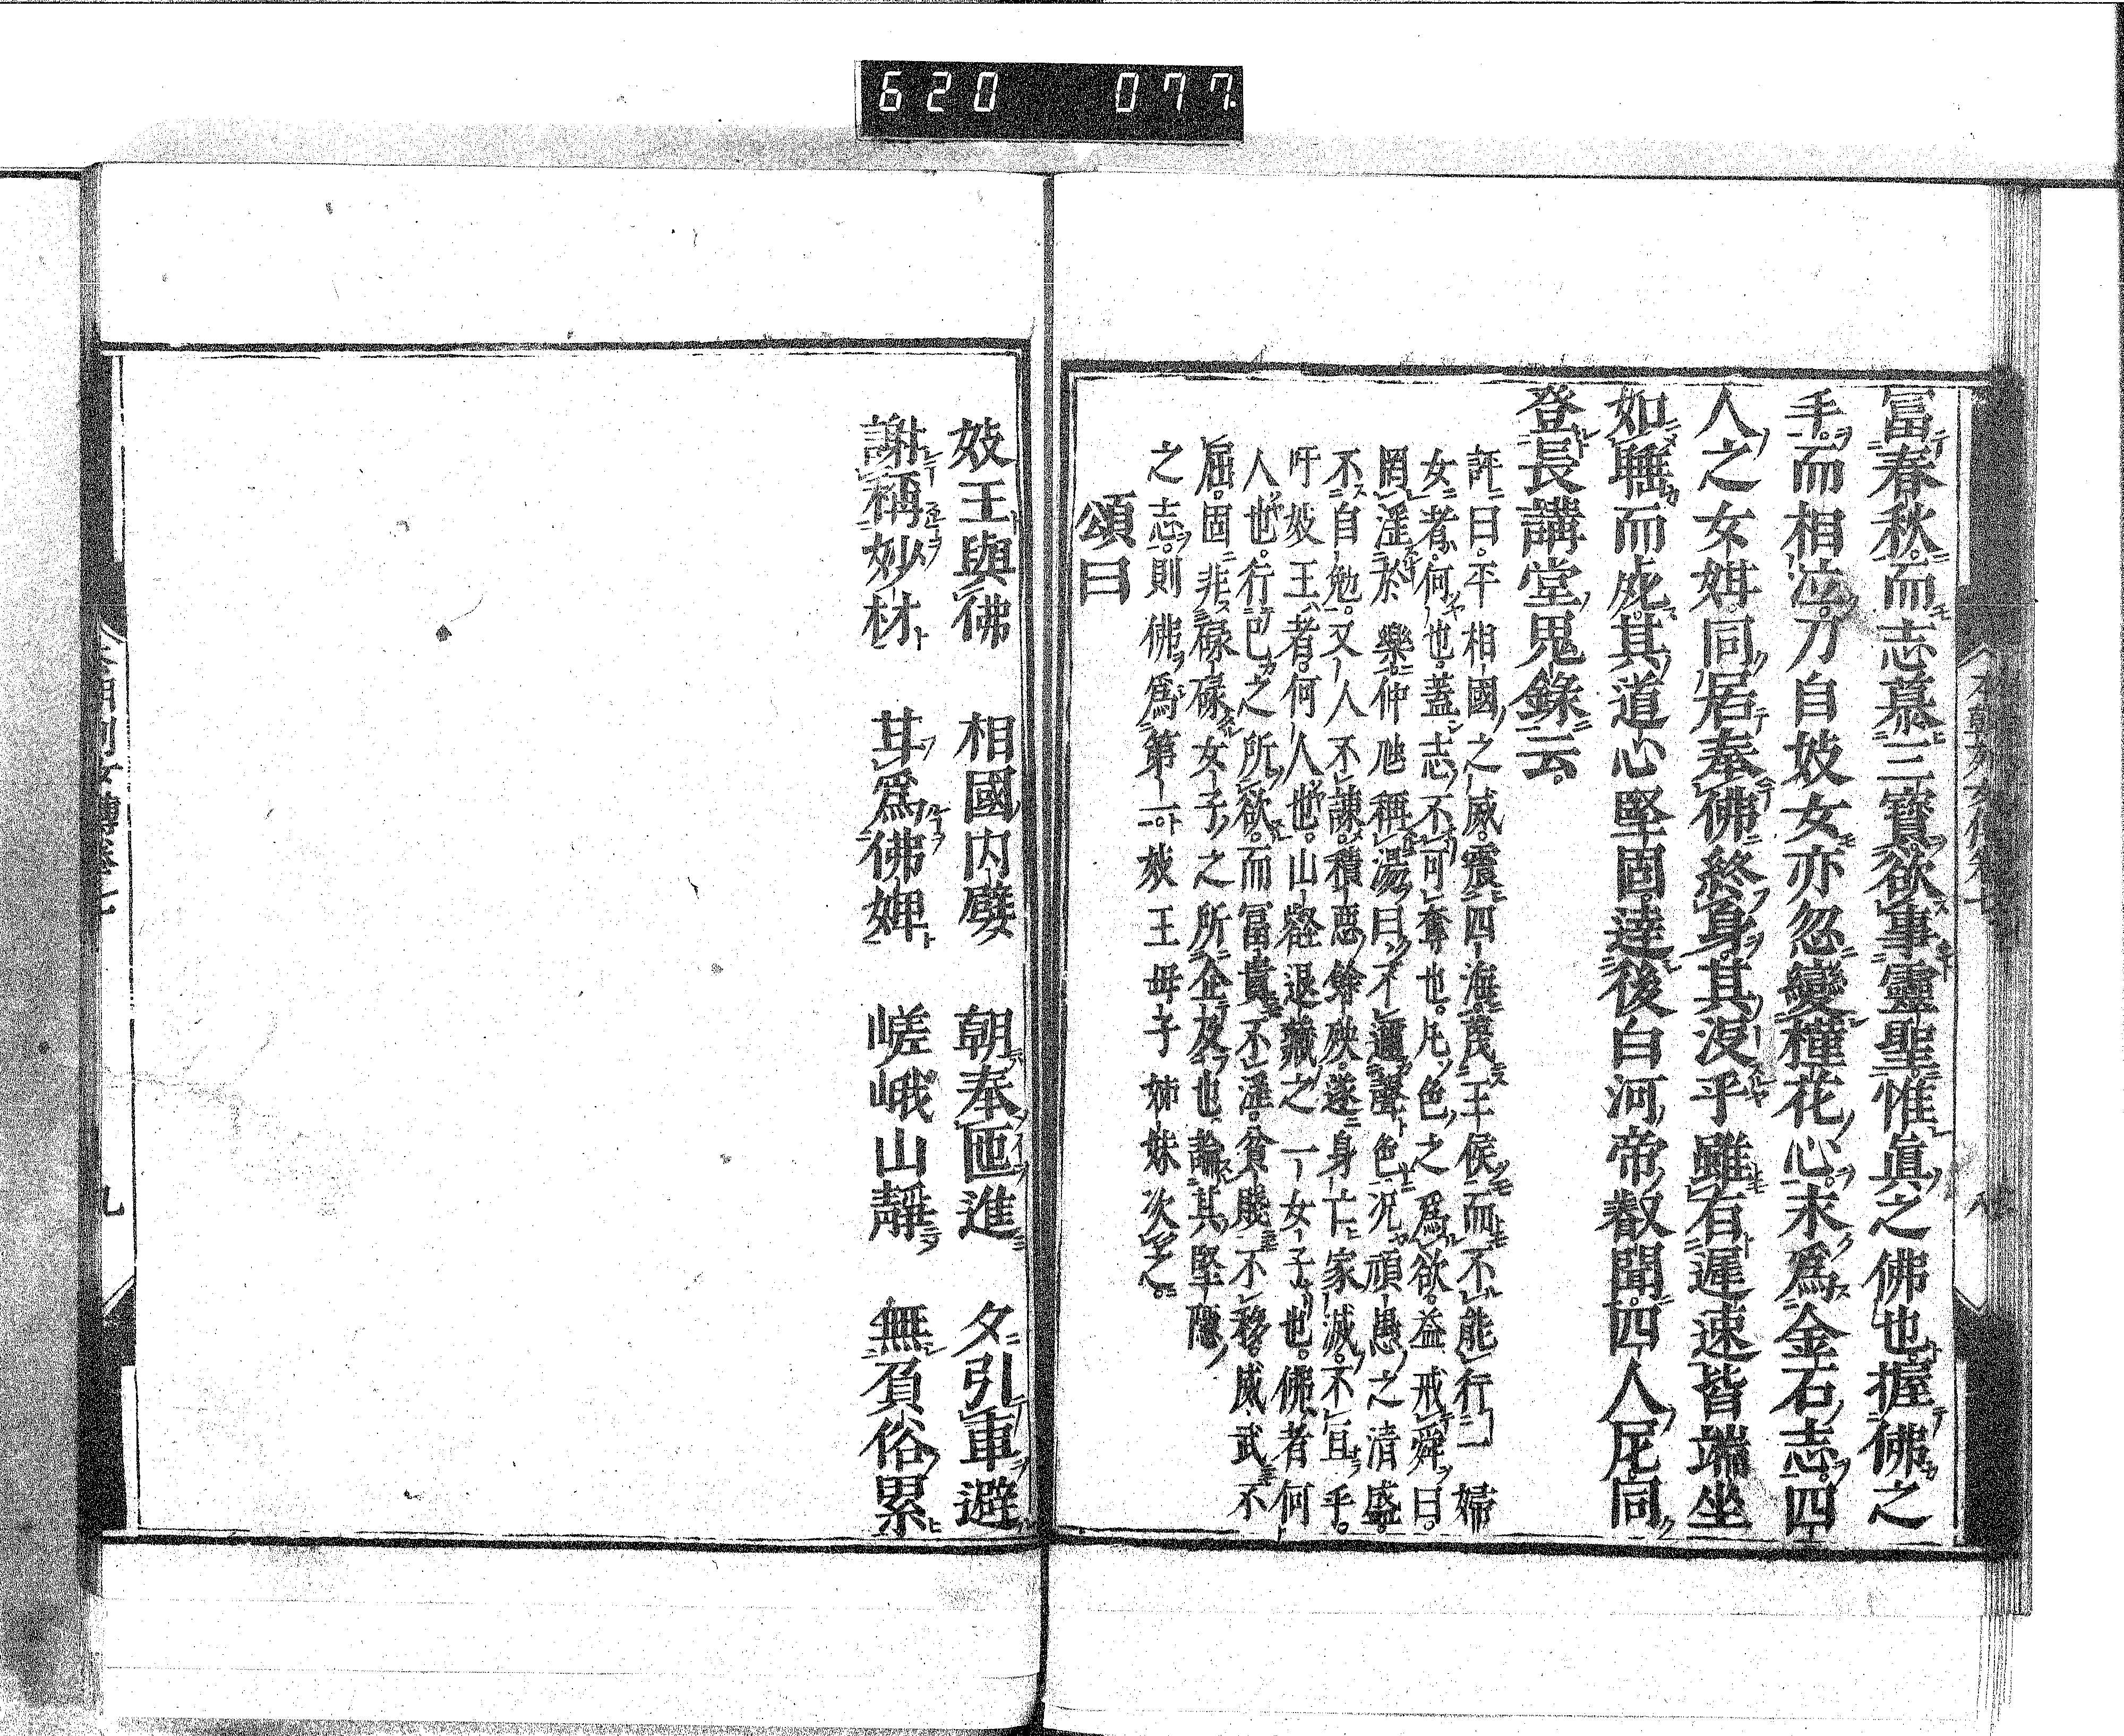 620 077
本朝列女傳卷七 八
冨春秋而志慕三寶欲事靈聖惟眞之佛也握佛之
手而相泣刀自妓女亦忽變穜花心末爲金石志四
人之女娸同居奉佛終身其没乎雖有遲速皆端坐
如睡而死其道心堅固達後白河帝叡聞四人尼同
登長講堂鬼錄云
評曰平相國之威震四海蔑王侯而不能行一婦
女者何也蓋志不可奪也凡色之爲欲益戒舜曰
罔淫於樂仲虺稱湯曰不邇聲色況頑愚之清盛
不自勉又人不諌積惡餘殃遂身亡家滅不宜乎
吁妓王者何人也山壑退藏之一女子也佛者何
人也行己之所欲而冨貴不淫貧賤不移威武不
屈固非碌碌女子之所企及也論其堅隱
之志則佛爲第一妓王母子姉妹次之
頌曰
妓王與佛 相國内嬖 朝奉匜進 夕引車避
謝稱妙材 甘爲佛婢 嵯峨山靜 無負俗累
本朝列女傳卷七 九